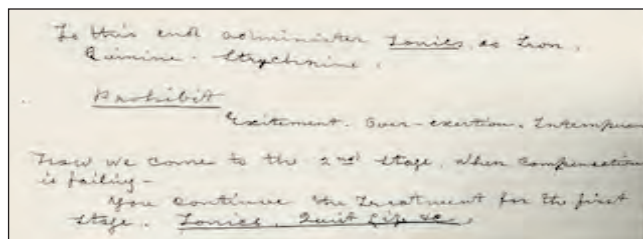 To this end administer Tonics, as Iron,
Quinine - Strychnine.
Prohibit
Excitement. Over-exertion. Intemperan
Now we come to the 2nd stage. When compensation
is failing -
You continue the treatment for the first
stage. Tonics, Quiet life &c.